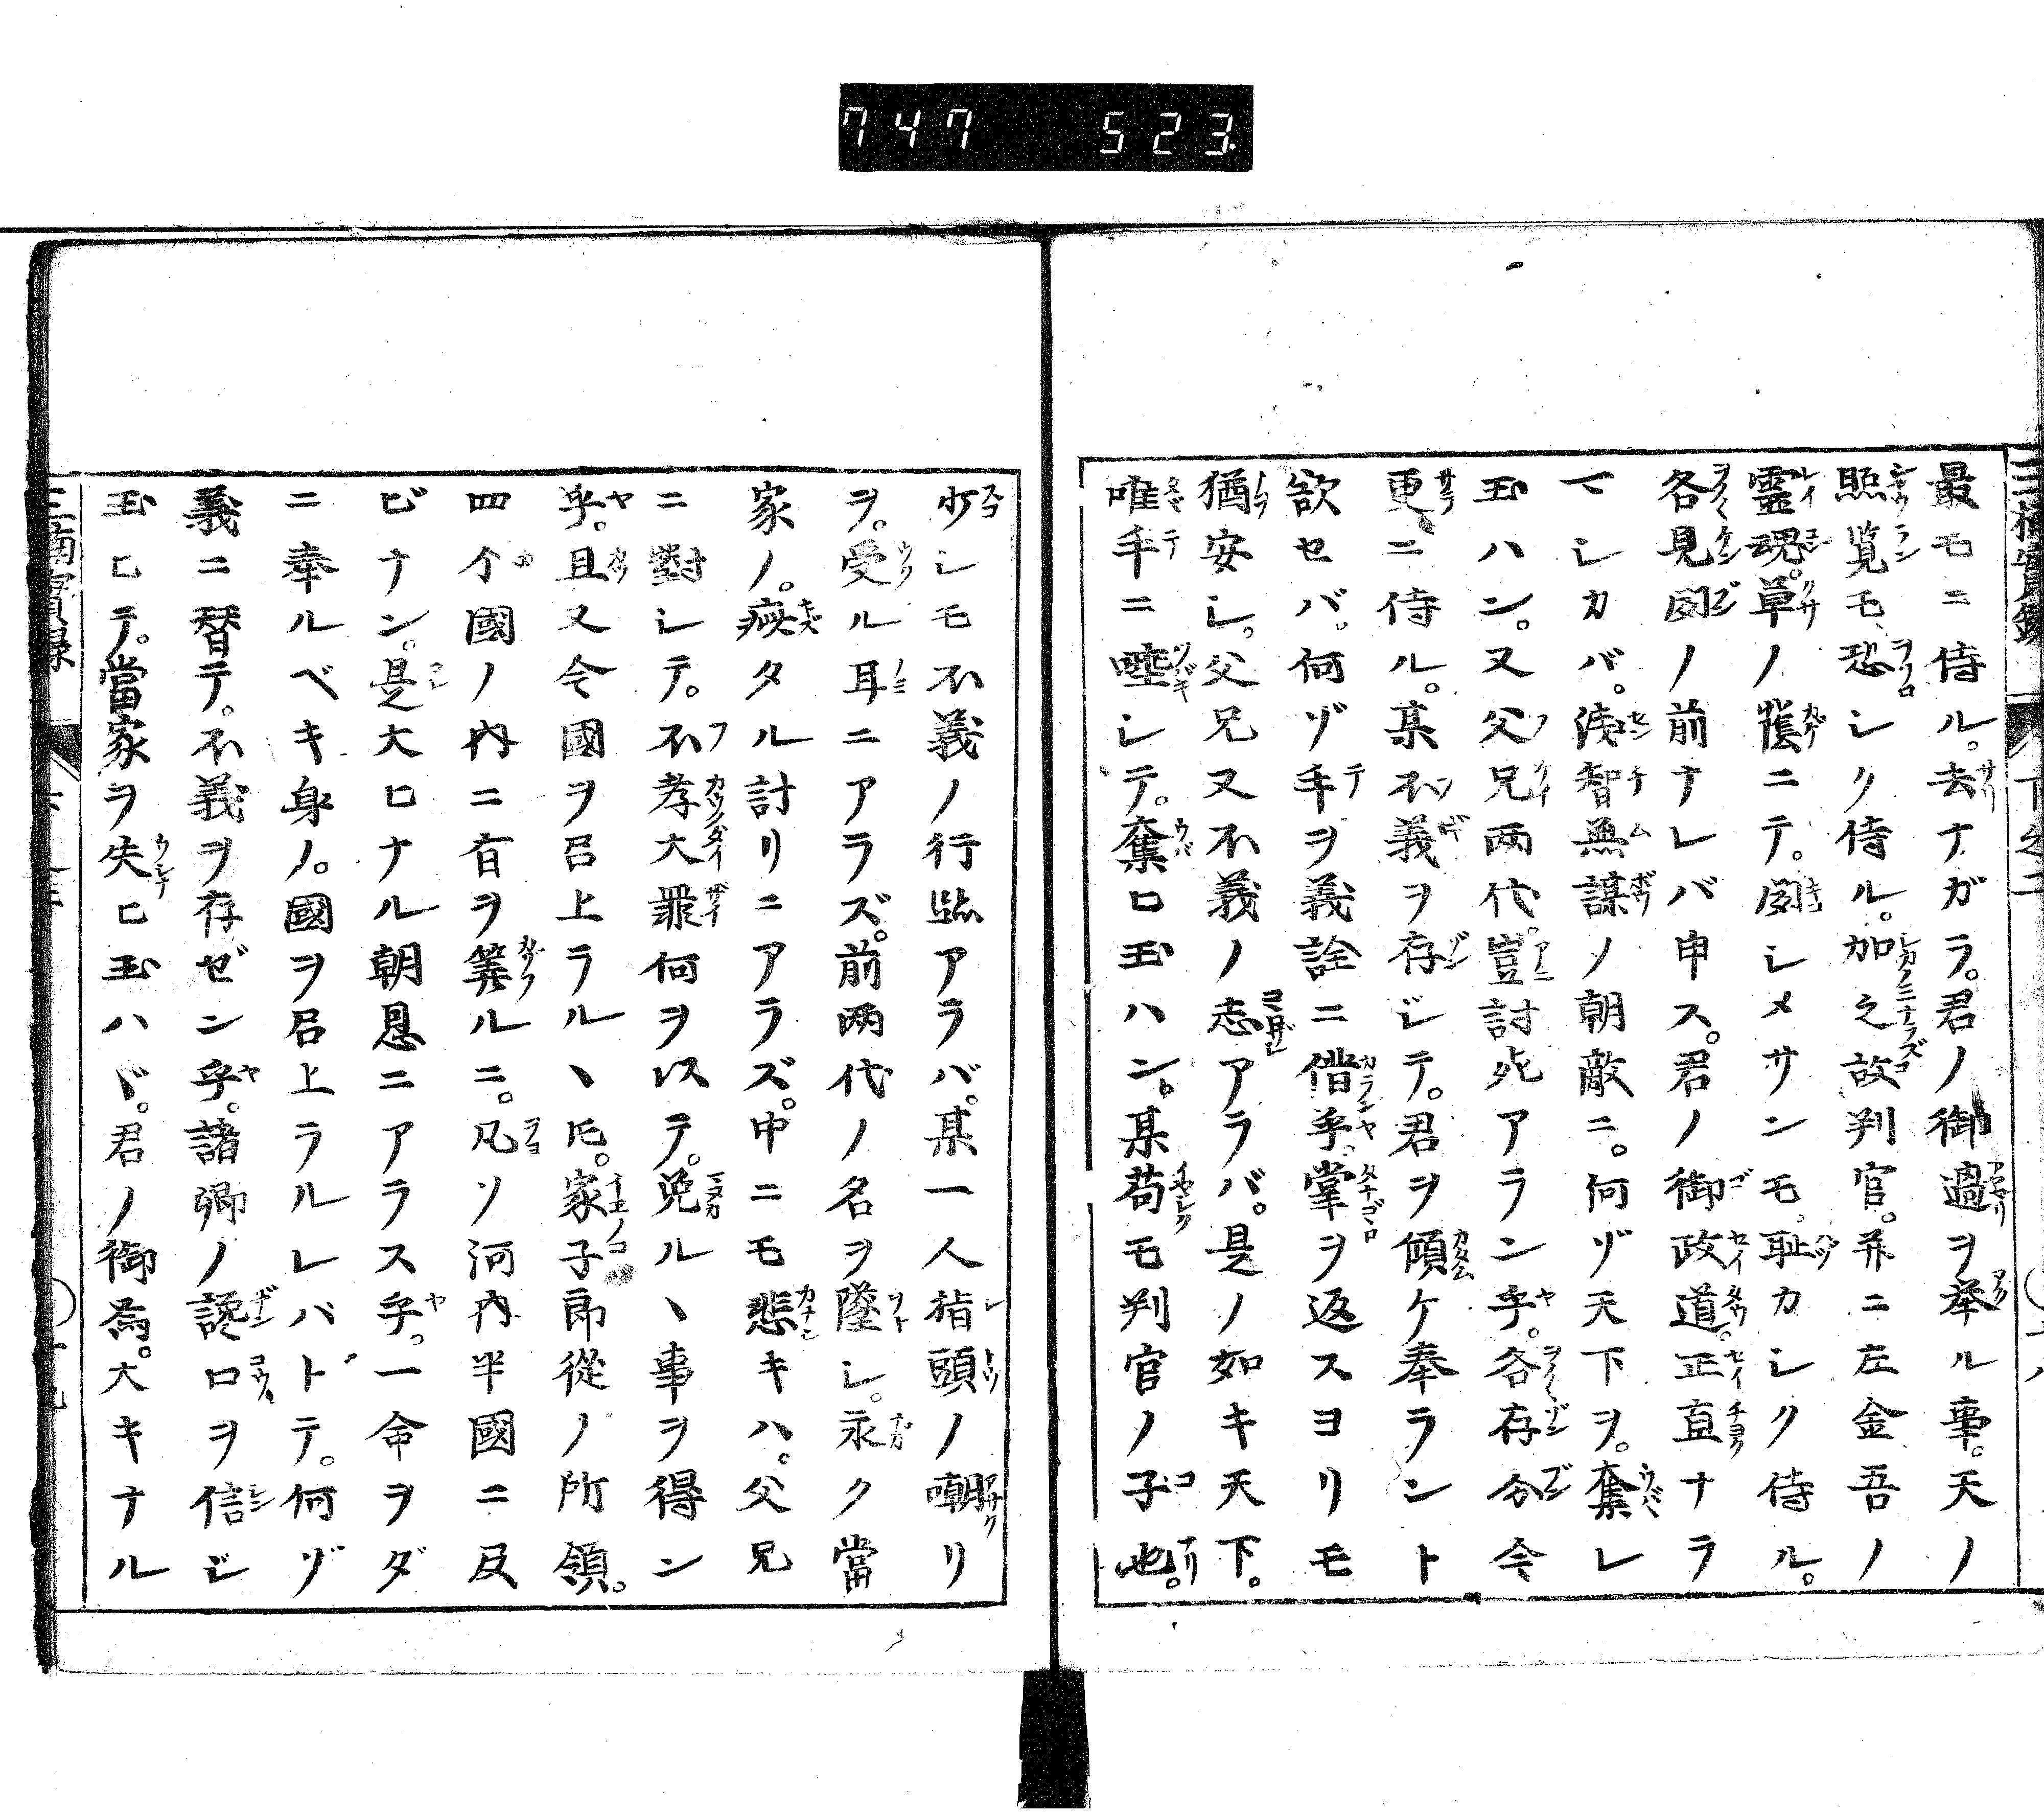 747 523
最モニ侍ル。去ナガラ。君ノ御過ヲ挙ル事。天ノ
照覧モ、恐シク侍ル。加之故判官。并ニ左金吾ノ
霊魂。草ノ蔭ニテ。聞シメサンモ。恥カシク侍ル。
各見聞ノ前ナレバ申ス。君ノ御政道。正直ナラ
マシカバ。浅智無謀ノ朝敵ニ。何ゾ天下ヲ。奪レ
玉ハン。又父兄両代。豈討死アラン乎。各存分今
更ニ侍ル。某不義ヲ存ジテ。君ヲ傾ケ奉ラント
欲セバ。何ゾ手ヲ義詮ニ借乎。掌ヲ返スヨリモ
猶安シ。父兄又不義ノ志アラバ。是ノ如キ天下。
唯手ニ唾シテ。奪ヒ玉ハン。某苟モ判官ノ子也。
少シモ不義ノ行跡アラバ。某一人指頭ノ嘲リ
ヲ。受ル耳ニアラズ。前両代ノ名ヲ墜シ。永ク當
家ノ。瘢タル討リニアラズ。中ニモ悲キハ。父兄
ニ對シテ。不孝大罪何ヲ以テ。免ルヽ事ヲ得ン
乎。且又今國ヲ召上ラルヽ𪜈。家子郎從ノ所領。
四个國ノ内ニ有ヲ筭ルニ。凡ソ河内半國ニ及
ビナン。是大ヒナル朝恩ニアラス乎。一命ヲダ
ニ奉ルベキ身ノ。國ヲ召上ラルレバトテ。何ゾ
義ニ替テ。不義ヲ存ゼン乎。諸卿ノ讒口ヲ信ジ
玉ヒテ。當家ヲ失ヒ玉ハヾ。君ノ御為。大キナル